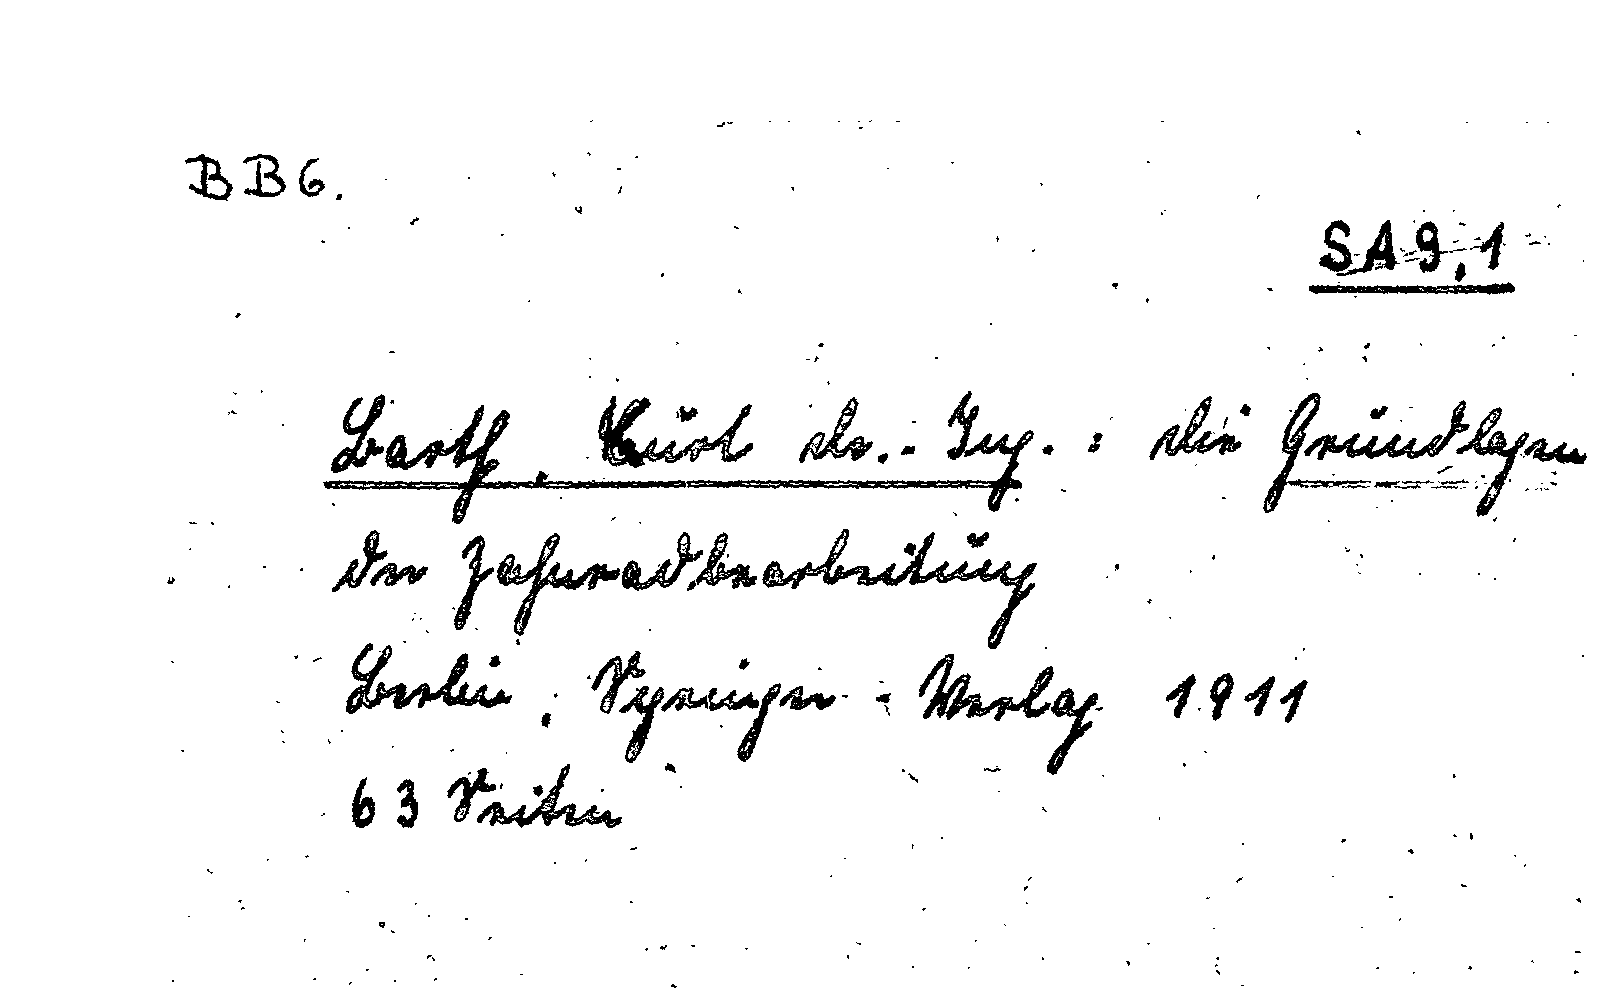 BB6.
SA 9.1
Barth, Kurt Dr.-Ing.: Die Grundlagen
der Zahnradbearbeitung
Berlin, Springer-Verlag 1911
63 Seiten